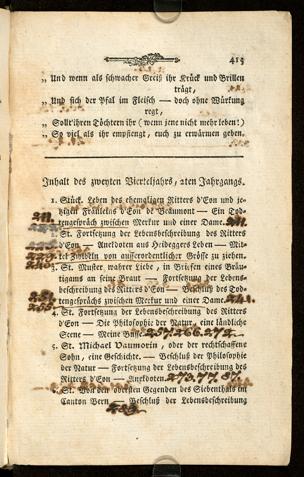 415
„ Und wenn als schwacher Greiß ihr Krück und Brillen
trägt,
„ Und sich der Pfal im Fleisch — doch ohne Würkung
regt,
„ Sollt'ihren Töchtern ihr (wenn jene nicht mehr leben!)
„ So viel als ihr empfiengt, euch zu erwärmen geben.
Inhalt des zweyten Vierteljahrs, 2ten Jahrgangs.
1. Stück. Leben des ehemaligen Ritters d'Eon und je-
tzigen Fräuleins d'Eon de Beaumont — Ein Tod-
tengespräch zwischen Merkur und einer Dame.
St. Fortsetzung der Lebensbeschreibung des Ritters
d'Eon — Anekdoten aus Heideggers Leben — Mit-
tel von ausserordentlicher Grösse zu ziehen.
3. St. Muster, wahrer Liebe, in Briefen eines Bräu-
tigams an seine Braut — Fortsetzung der Lebens-
beschreibung des Ritters d'Eon — Beschluß des Tod-
tengesprächs zwischen Merkur und einer Dame. 241.
4. St. Fortsetzung der Lebensbeschreibung des Ritters
d'Eon — Die Philosophie der Natur, eine ländliche
Scene — Meine Busse. 257. 266. 272.
5. St. Michael Vaumorin, oder der rechtschaffene
Sohn, eine Geschichte. — Beschluß der Philosophie
der Natur — Fortsetzung der Lebensbeschreibung des
Ritters d'Eon — Anekdoten. 273. 77. 87.
St. Von den obersten Gegenden des Siebenthals im
Canton Bern — Beschluß der Lebensbeschreibung